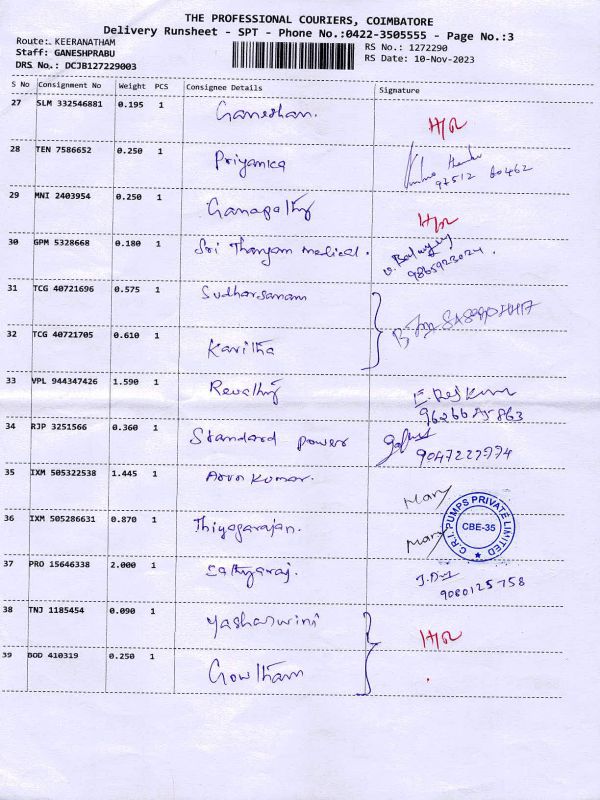 THE PROFESSIONAL COURIERS, COIMBATORE
Delivery Runsheet - SPT - Phone No.:0422-3505555 - Page No.:3
Route: KEERANATHAM
Staff: GANESHPRABU
DRS No.: DCJB127229003
RS No.: 1272290
RS Date: 10-Nov-2023
S No Consignment No Weight PCS Consignee Details Signature
27 SLM 332546881 0.195 1 Ganeshan. H/R
28 TEN 7586652 0.250 1 Priyanka
97512 60462
29 MNI 2403954 0.250 1 Ganapathy H/R
30 GPM 5328668 0.180 1 Sri Thangam medical.
9865923024.
31 TCG 40721696 0.575 1 Sudharsanam
32 TCG 40721705 0.610 1 Kavitha
33 VPL 944347426 1.590 1 Revathy
34 RJP 3251566 0.360 1 Standard power
35 IXM 505322538 1.445 1 Arun Kumar. Mary
36 IXM 505286631 0.870 1 Thiyagarajan. Mary
C.R.I. PUMPS PRIVATE LIMITED
CBE-35
37 PRO 15646338 2.000 1 Sathyaraj.
9080125758
38 TNJ 1185454 0.090 1 Yashaswini H/R
39 BOD 410319 0.250 1 Gowtham